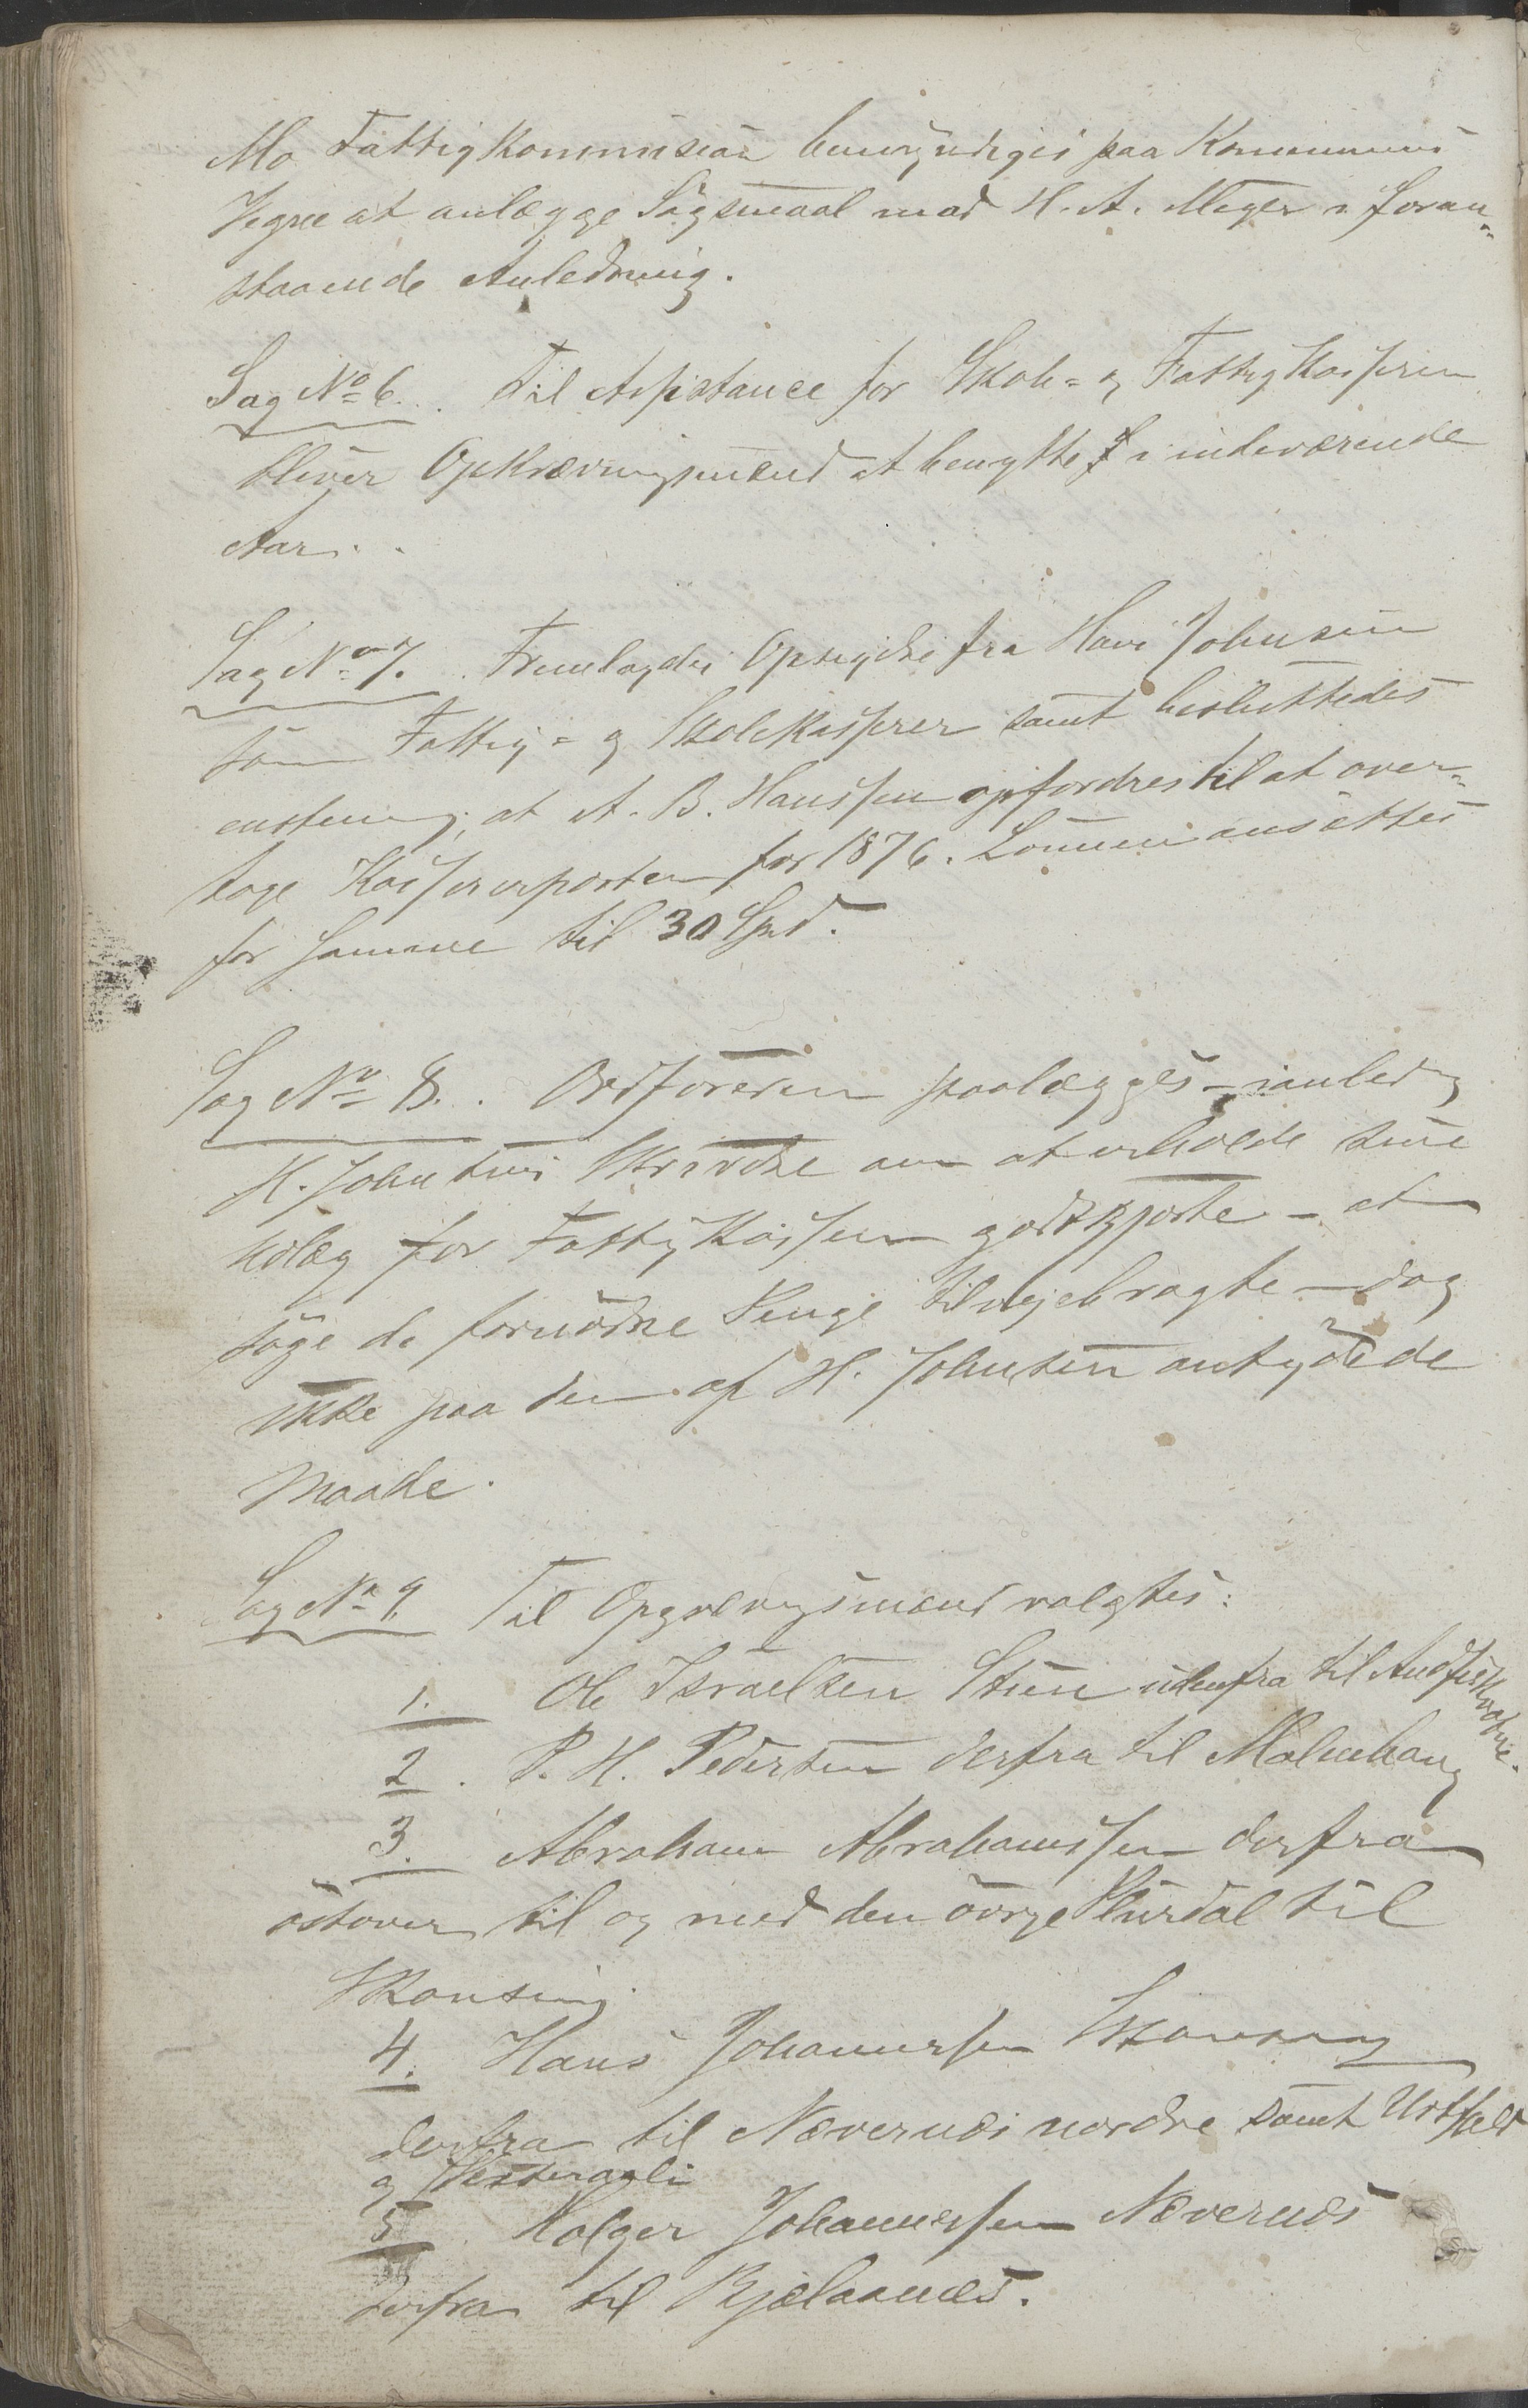 Mo Fattigkommision bemyndiges paa Kommunens
Vegne at anlægge Søgsmaal mod H. A. Meyer i foran-
staaende Anledning.
Sag No 6. Til Assistance for Skole- og Fattigkasseren
bliver Opkrævningsmænd at benytte i indeværende
Aar.
Sag No 7. Fremlagdes Opsigelse fra Hans Johnsen
som Fattig- og Skolekasserer samt besluttedes
enstemig, at A. B. Hanssen opfordres til at over-
tage Kassererposten for 1876. Lønnen ansættes
for samme til 30 Spd.
Sag No 8. Ordføreren paalægges - i anledng
H. Johnsens Skrivelse om at erholde sine
Udlæg for Fattigkassen godtgjorte - at
søge de fornødne Penge tilvejebragte - dog
ikke paa den af H. Johnsen antydede
Maade.
Sag No 9. Til Opgrævngsmænd valgtes:
1. Ole Israelsen Stien udenfra til Andfiskvatne.
2. P. H. Pedersen derfra til Molnehaug
3. Abraham Abrahamssen derfra
østover til og med den øvrge Plurdal til
Skonseng.
4. Hans Johannessen Skonseng
derfra til Nævernæs nordre samt Urtfjeld
og Vesteraali
5. Holger Johannessen Nævernæs
derfra til Bjelaanæs.